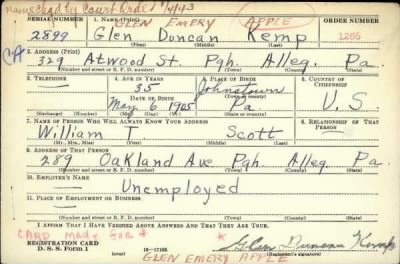 name chgd by Court Order 1/4/43
GLEN EMERY APPLE
SERIAL NUMBER 1. NAME (Print) ORDER NUMBER
2899 Glen Duncan Kemp 1285
(First) (Middle) (Last)
2. ADDRESS (Print)
329 Atwood St. Pgh. Alleg. Pa.
(Number and street or R. F. D. number) (Town) (County) (State)
3. TELEPHONE 4. AGE IN YEARS 5. PLACE OF BIRTH 6. COUNTRY OF CITIZENSHIP
35 Johnstown
DATE OF BIRTH (Town or county)
May 6 1905 Pa. U. S
(Exchange) (No.) (Mo.) (Day) (Yr.) (State or country)
7. NAME OF PERSON WHO WILL ALWAYS KNOW YOUR ADDRESS 8. RELATIONSHIP OF THAT PERSON
William T. Scott
(Mr., Mrs., Miss) (First) (Middle) (Last)
9. ADDRESS OF THAT PERSON
289 Oakland Ave Pgh. Alleg. Pa.
(Number and street or R. F. D. number) (Town) (County) (State)
10. EMPLOYER'S NAME
Unemployed
11. PLACE OF EMPLOYMENT OR BUSINESS
(Number and street or R. F. D. number) (Town) (County) (State)
I AFFIRM THAT I HAVE VERIFIED ABOVE ANSWERS AND THAT THEY ARE TRUE.
CARD Made FOR *
REGISTRATION CARD
D. S. S. Form 1 (over) * Glen Duncan Kemp
(Registrant's signature)
GLEN EMERY APPLE